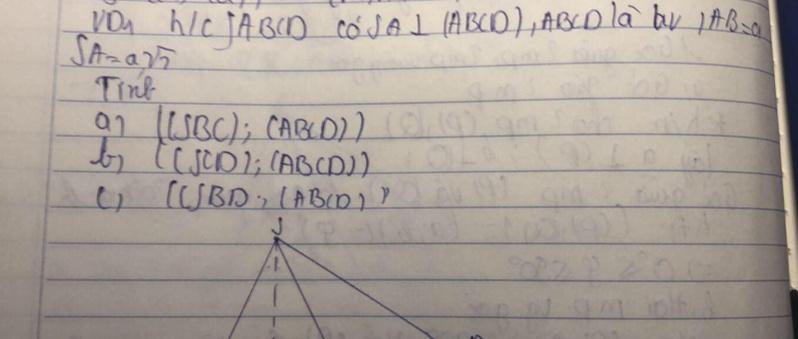 VD1 h/c SABCD có SA ⊥ (ABCD), ABCD là hv, AB=a
SA=a√2
Tính
a, ((SBC); (ABCD))
b, ((SCD); (ABCD))
c, ((SBD; (ABCD))
S